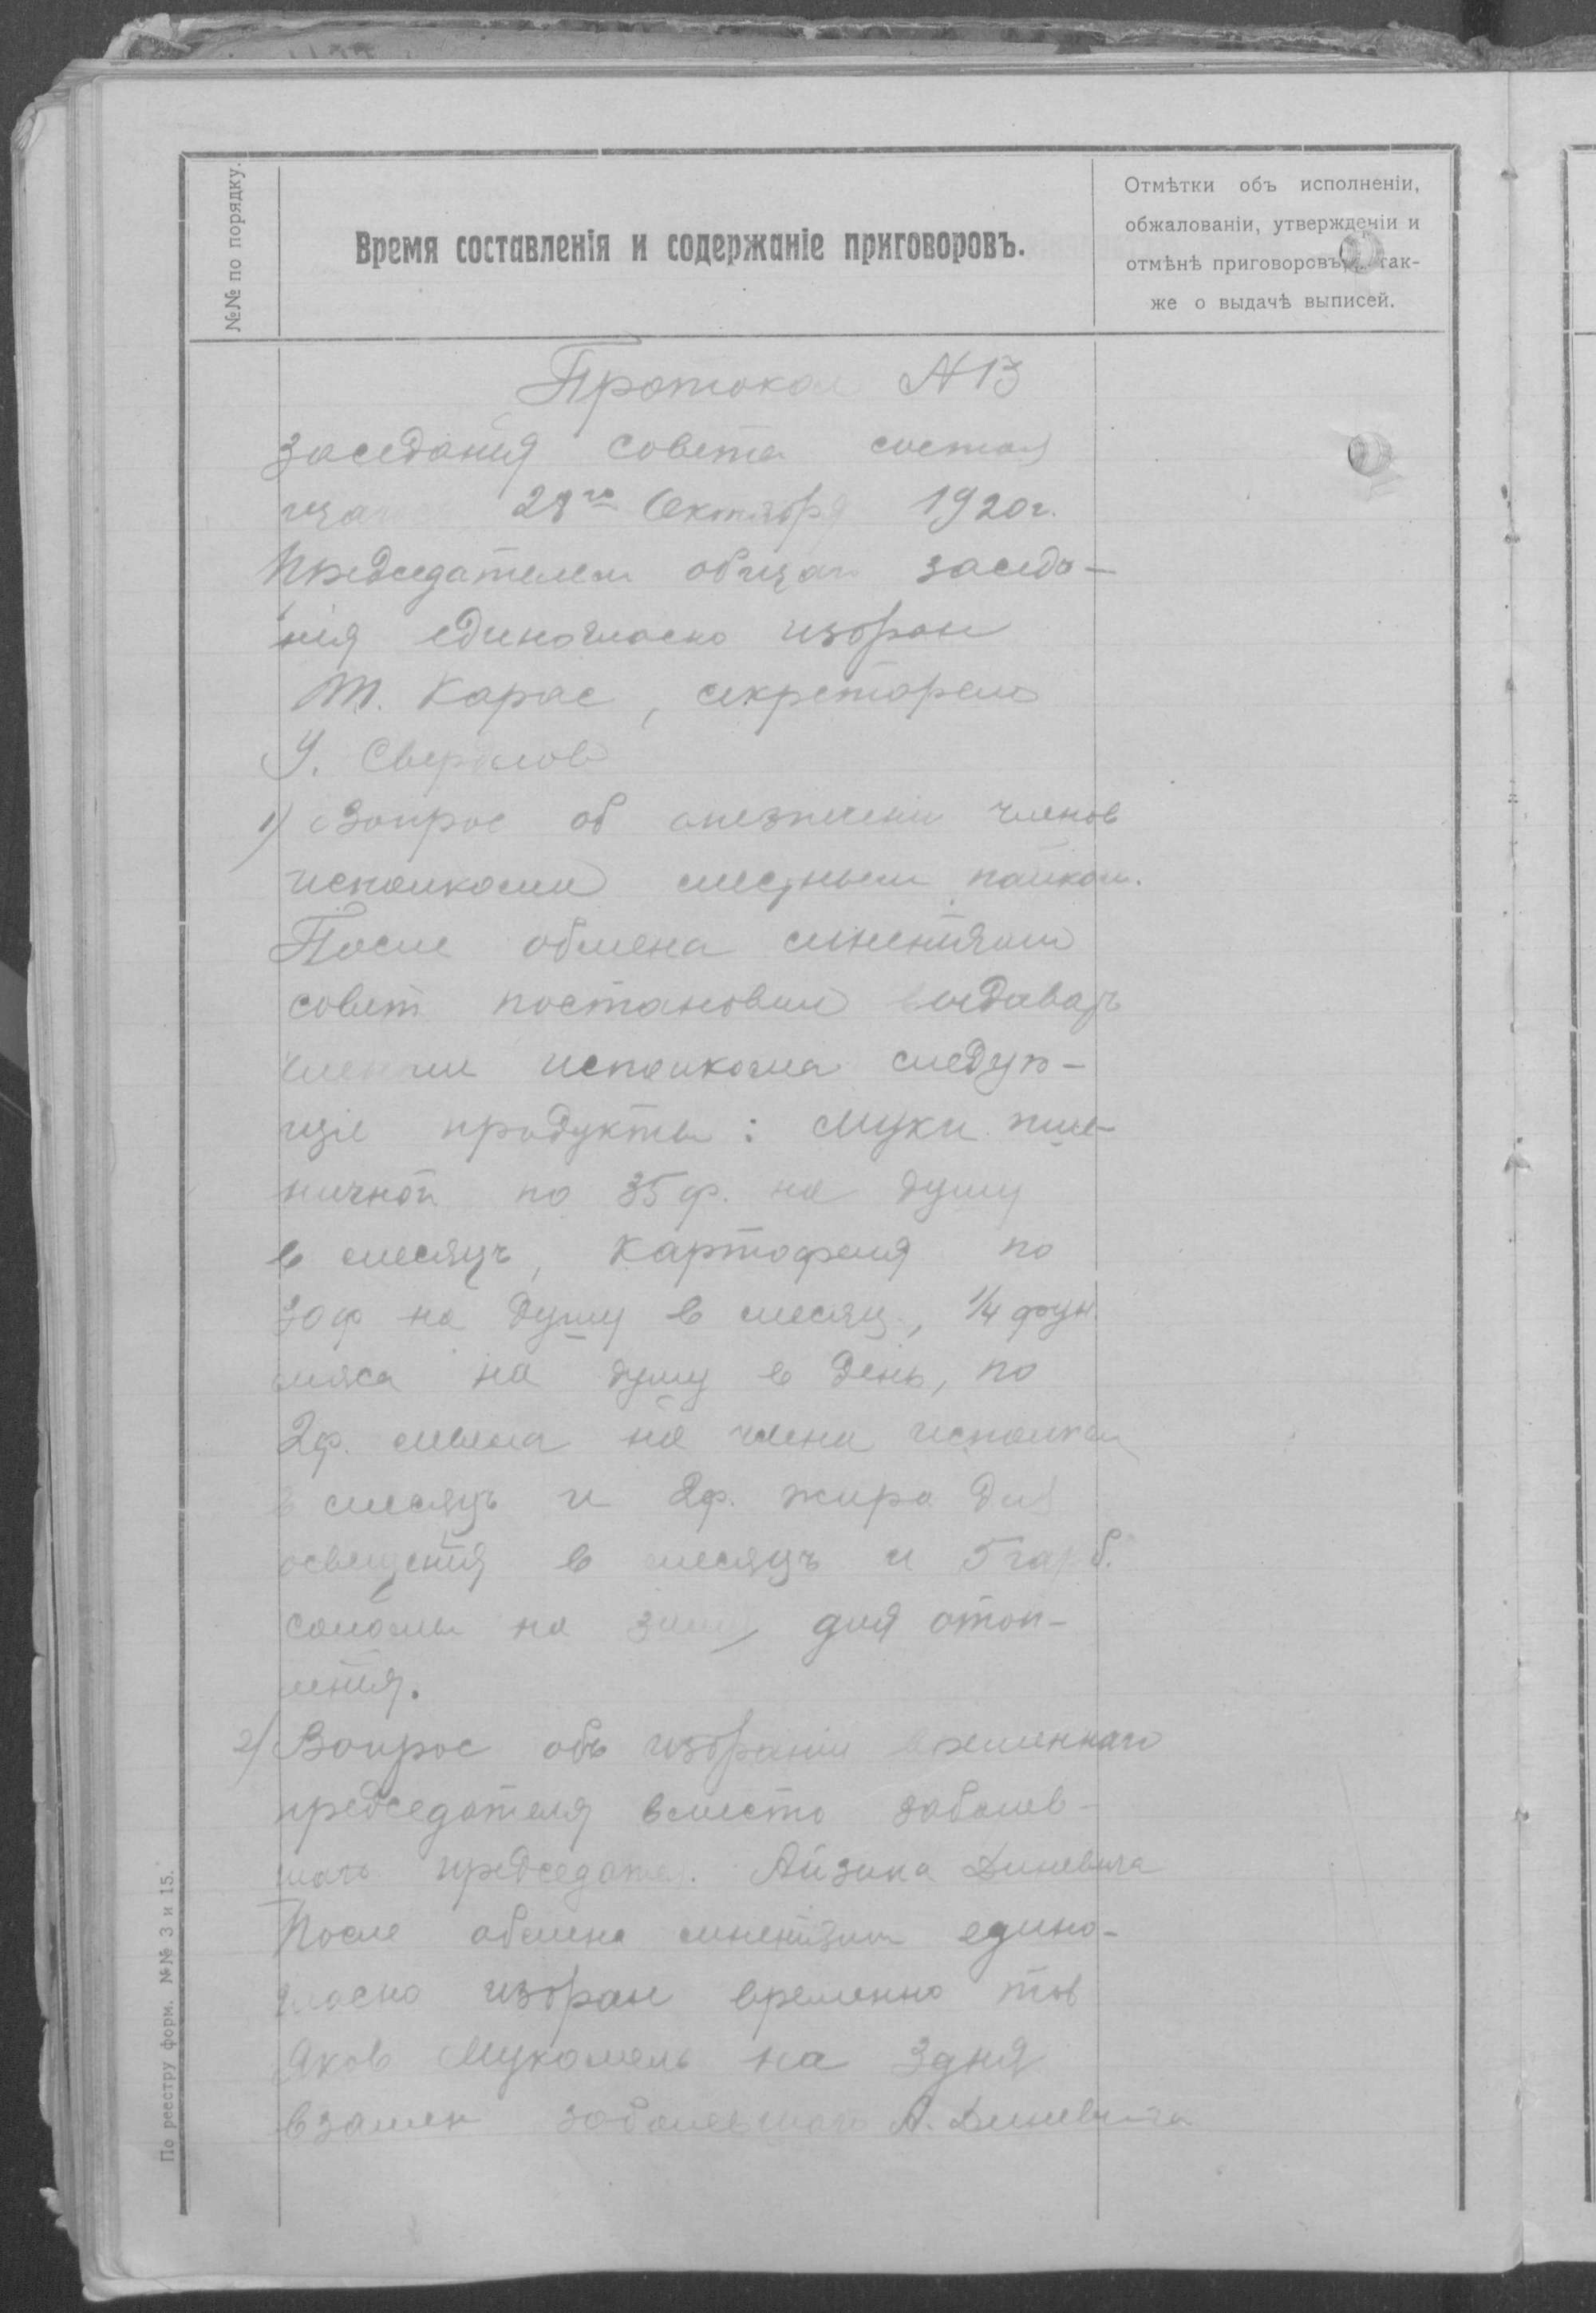 №№ по порядку.
Время составленія и содержаніе приговоровъ.
Отмѣтки объ исполненіи,
обжалованіи, утвержденіи и
отмѣнѣ приговоровъ, а так-
же о выдачѣ выписей.
Протокол N 13
заседанія совета состояв
28го Октября 1920г.
Председателем общаго заседа-
нія единогласно избран
Т. Карас, секретарем
У. Свердлов
1) Вопрос об членов
исполкома пайком.
После обмена мненіями
совет постановил выдавать
членам исполкома следую-
щіе продукты: муки пше-
ничной по 35 ф. на душу
в месяцъ, картофеля по
30ф на душу в месяц, 1/4 фун.
мяса на душу в день, по
2ф. мыла на члена исполком
в месяцъ и 2ф. жира для
освещенія в месяцъ и 5 гарб.
соломы на зиму для отоп-
ленія.
2) Вопрос объ избраніи временнаго
председателя вместо заболев-
шаго председател. Айзика Диневича
После обмена мненіями едино-
гласно избран временно тов
Яков Мукомель на 3 дня
взамен заболевшаго А. Диневича
По реестру форм. №№ 3 и 15.